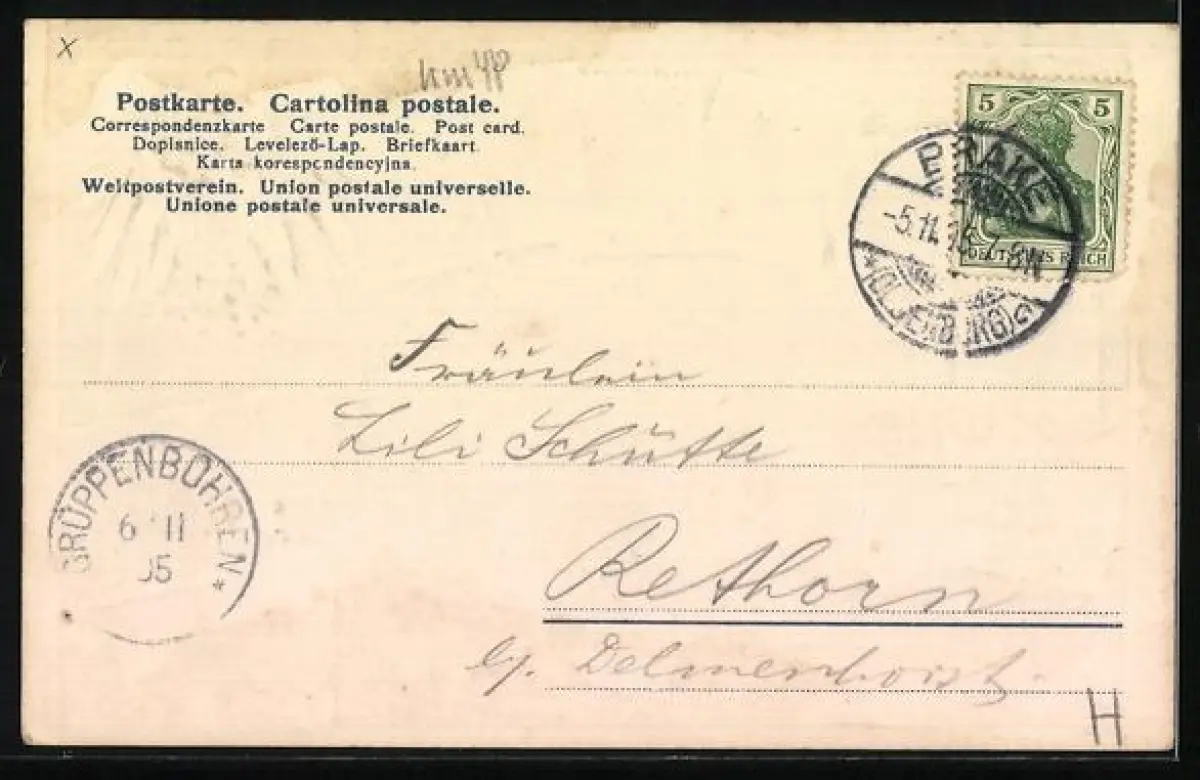 x
Postkarte. Cartolina postale.
Correspondenzkarte Carte postale. Post card.
Dopisnice. Levelező-Lap. Briefkaart.
Karta korespondencyjna.
Weltpostverein. Union postale universelle.
Unione postale universale.
5 5
DEUTSCHES REICH
BRAKE
-5.11. 7-8N.
*(OLDENBURG)
Fräulein
Lili Schütte
GRÜPPENBÜHREN *
6 11
05
Rethorn
Delmenhorst.
H